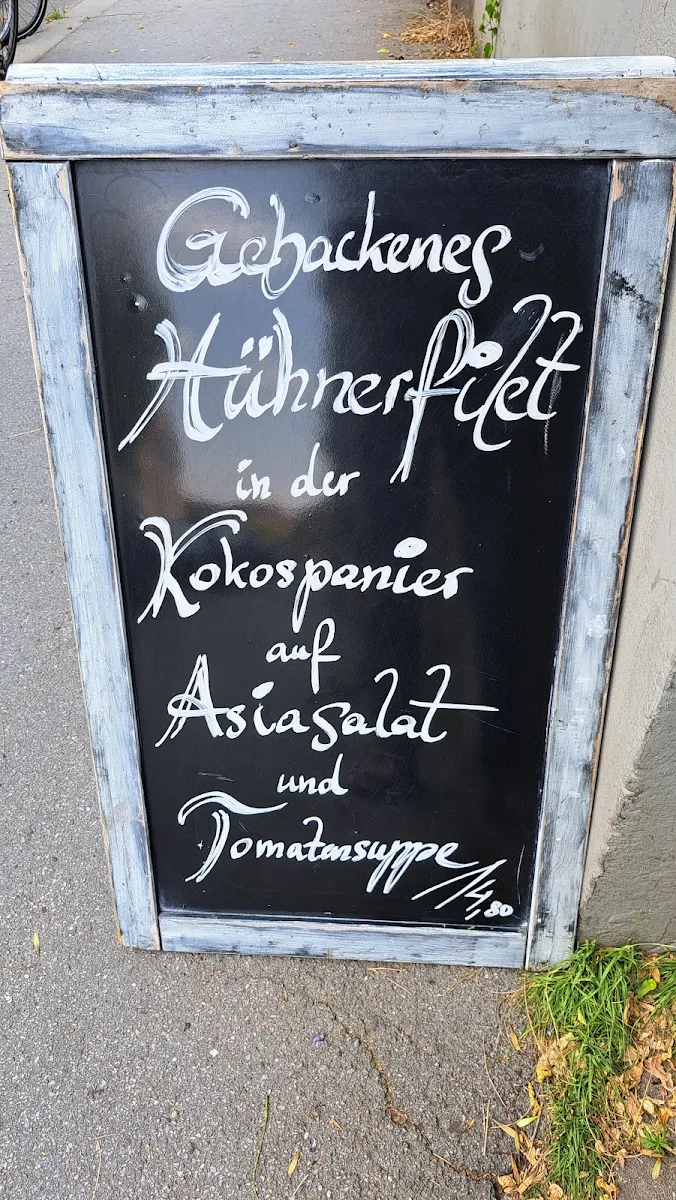 Gebackenes
Hühnerfilet
in der
Kokospanier
auf
Asiasalat
und
Tomatensuppe
14,80